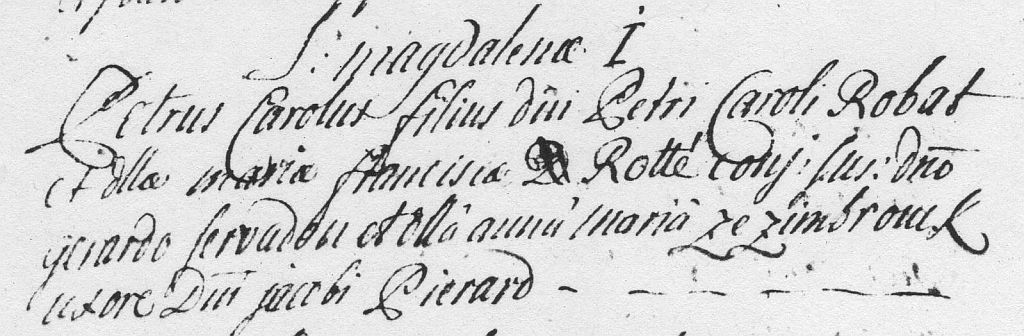 S: magdalenæ I
Petrus Carolus filius dni Petri Caroli Robat
et dllæ mariæ franciscæ Rotté conj: sus: dno
gerardo servadou et dllâ annâ mariâ zezimbrouck
uxore Dni jacobi Pierard - - - - - -